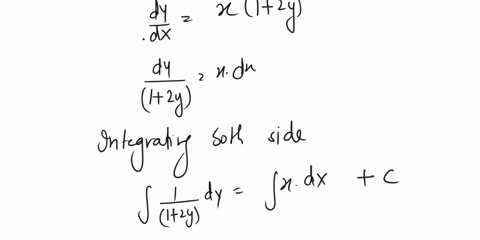 dy/dx = x(1+2y)
dy/(1+2y) = x.dx
Integrating both side
∫ 1/(1+2y) dy = ∫x.dx + C